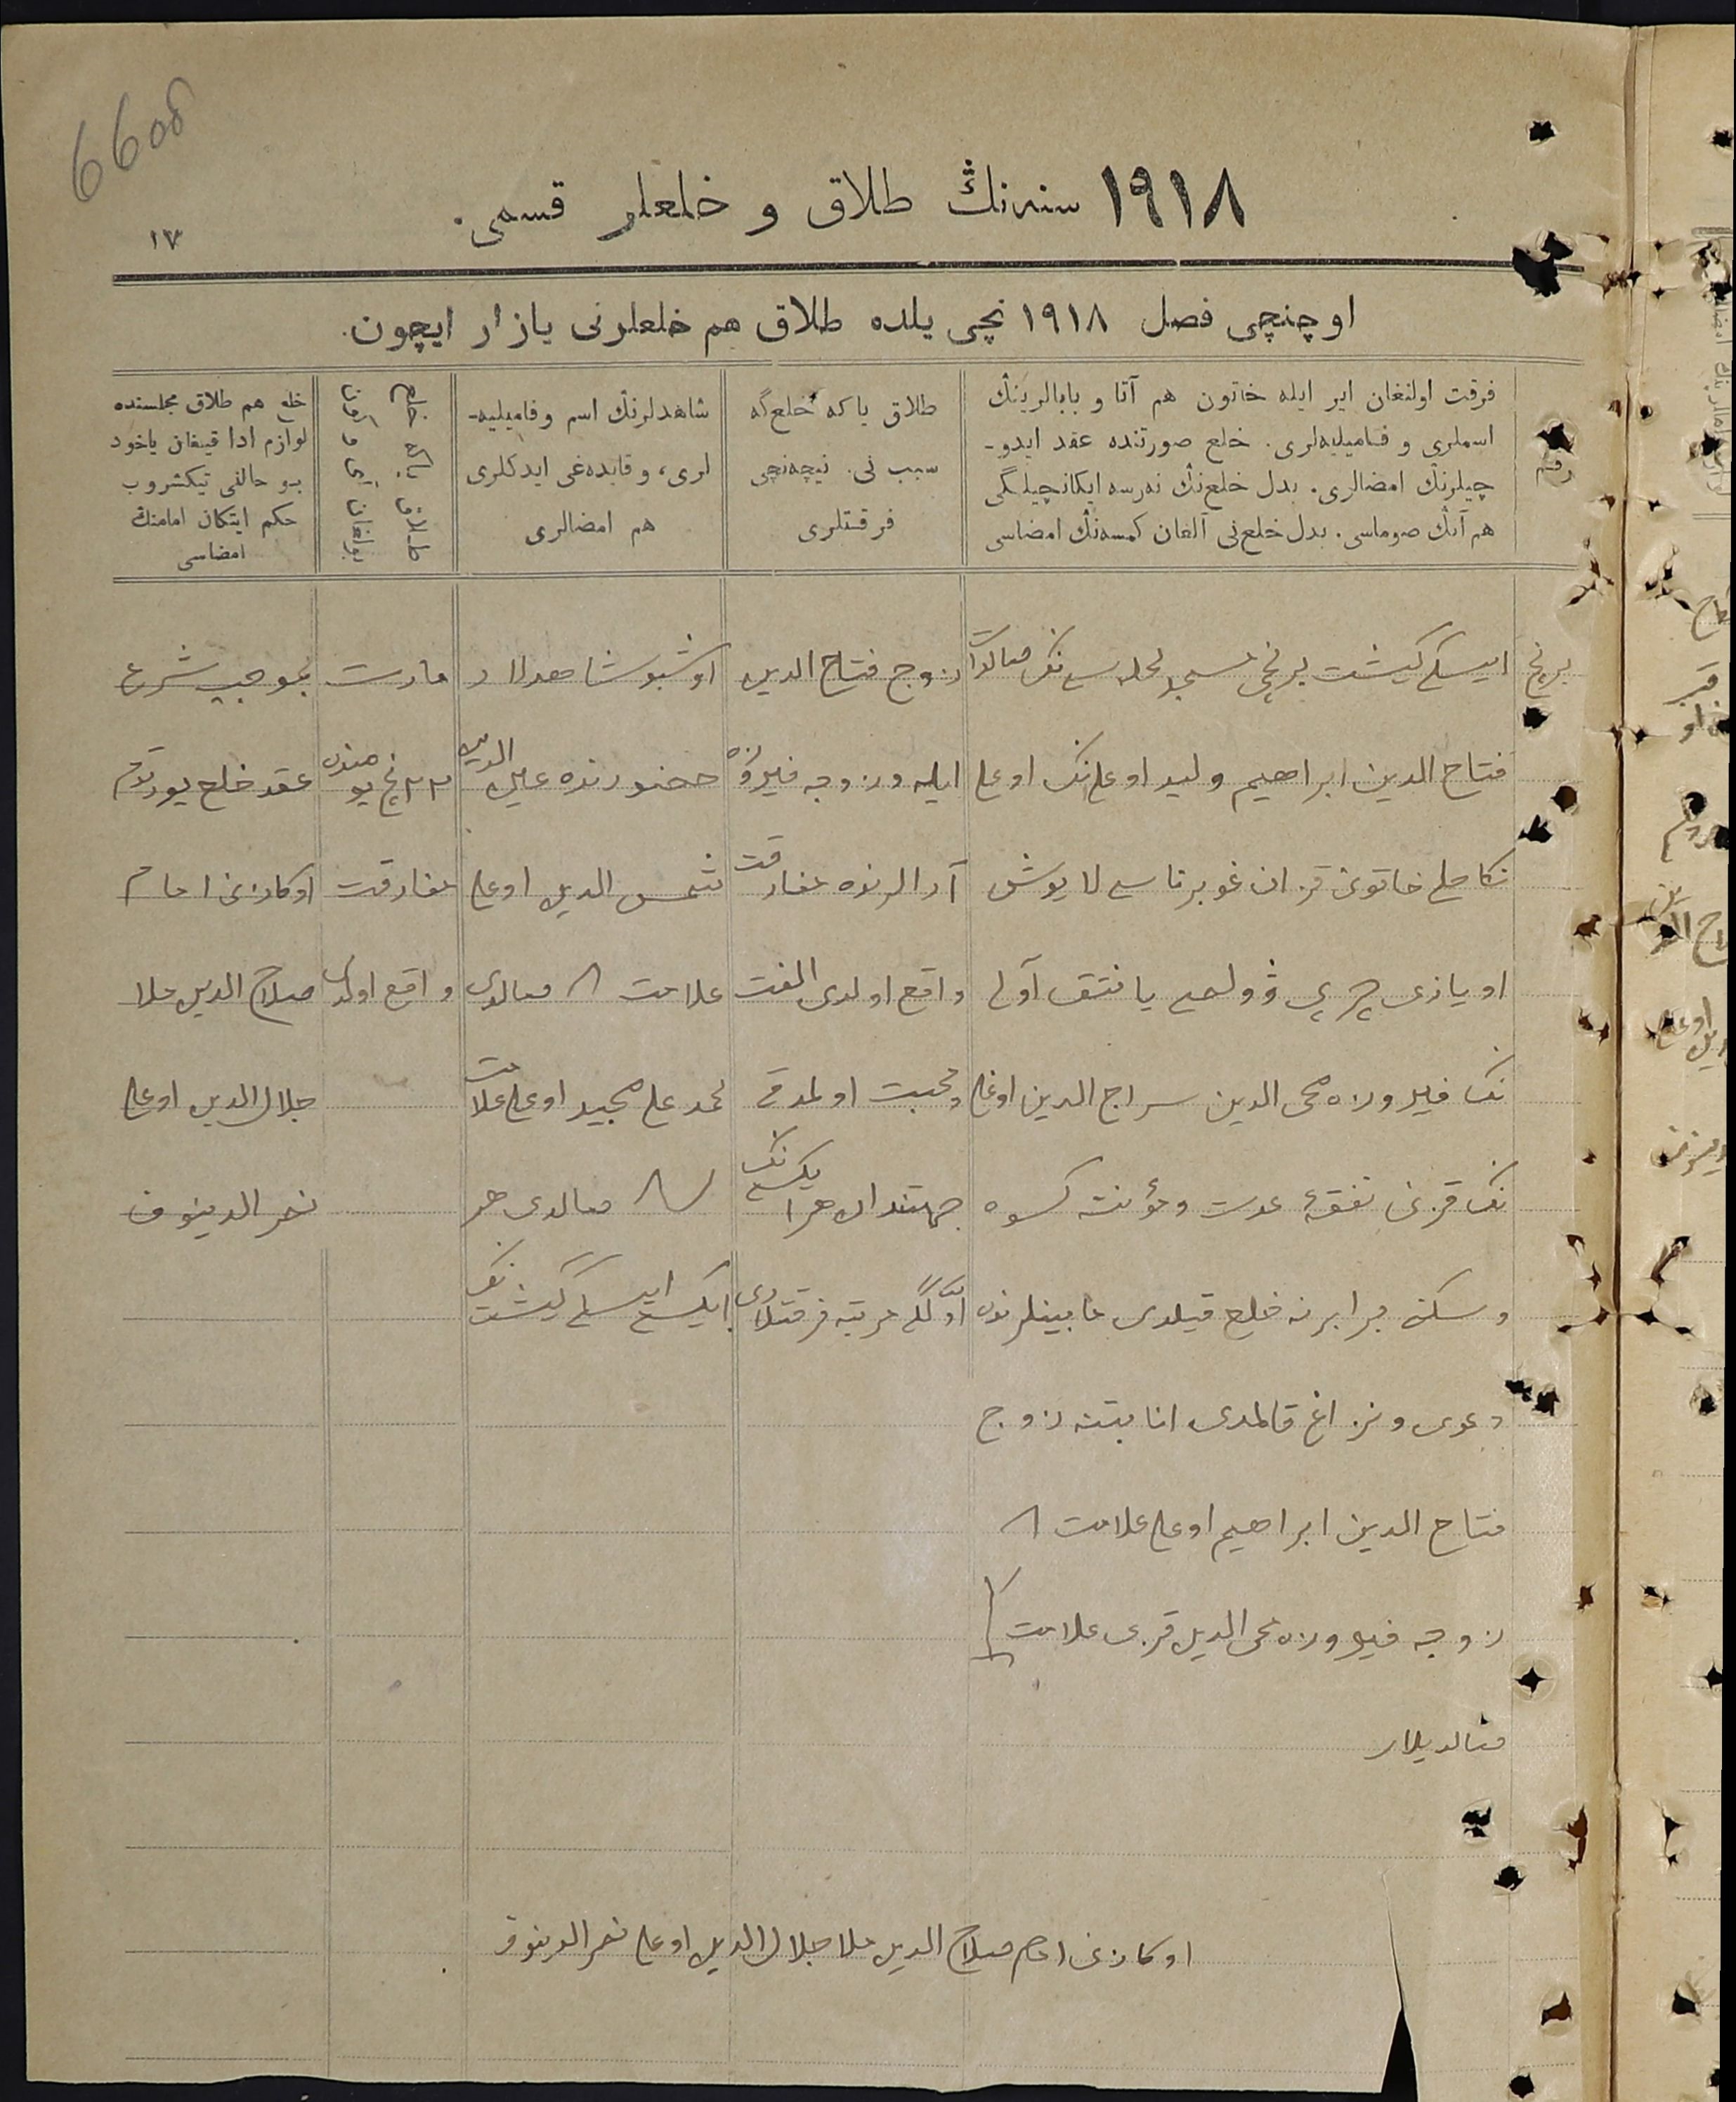 660б
١٩١٨ سنه‌نڭ طلاق و خلعلر قسمی.
١٧
اوچنچی فصل ١٩١٨ نچی یلده طلاق هم خلعلرنی یازار ایچون.
رقم
فرقت اولنغان ایر ایله خاتون هم آتا و بابالرینڭ
اسملری و فامیلیه‌لری. خلع صورتنده عقد ایدو-
چیلرنڭ امضالری. بدل خلع‌نڭ نه‌رسه ایکانچیلگی
هم آنڭ صوماسی. بدل خلع‌نی آلغان کمسه‌نڭ امضاسی
طلاق یاکه خلع‌گه
سبب نی. نیچه‌نچی
فرقتلری
شاهدلرنڭ اسم وفامیلیه-
لری، وقایده‌غی ایدکلری
هم امضالری
خلع یاکه طلاق
بولغان آی و کون
خلع هم طلاق مجلسنده
لوازم ادا قیلغان یاخود
بو حالنی تیکشروب
حکم ایتکان امامنڭ
امضاسی
برنچی
ایسکی کیشت برنچی مسجد محله سی نڭ
فتاح الدین ابراهیم ولید اوغلی نڭ اوغلی
نکاحلی خاتونی قزان غوبرناسی لایوش
اویازی وولصی یانتق آولی
نڭ فیروزه محی الدین سراج الدین اوغلی
نڭ قزی نفقهٔ عدت و مؤنت کسوه
و سکنی برابرنه خلع قیلدی مابینلرنده
دعوی و نزاغ قالمدی اثابتنه زوج
فتاح الدین ابراهیم اوغلی علامت
زوجه فیروزه محی الدین قزی علامت
صالدیلار
زوج فتاح الدین
ایله وزوجه فیروزه
آرالرنده مفارقت
واقع اولدی الفت
ومحبت اولمدقی
جهتندان هر ایکیسی نڭ
اوللگی مرتبه فرقتلری
اوشبو شاهدلار
حضورنده علی الدین
شمس الدین اوغلی
علامت صالدی
محمد علی مجید اوغلی علامت
صالدی هر
ایکیسی ایسکی کیشت نڭ
مارت
٢٣ نچی یومنده
مفارقت
واقع اولدی
بموجب شرع
عقد خلع یورتدم
اوکازنی امام
صلاح الدین ملا
جلال الدین اوغلی
نصر الدینوف
اوکازنی امام صلاح الدین ملا جلال الدین اوغلی نصر الدینوف